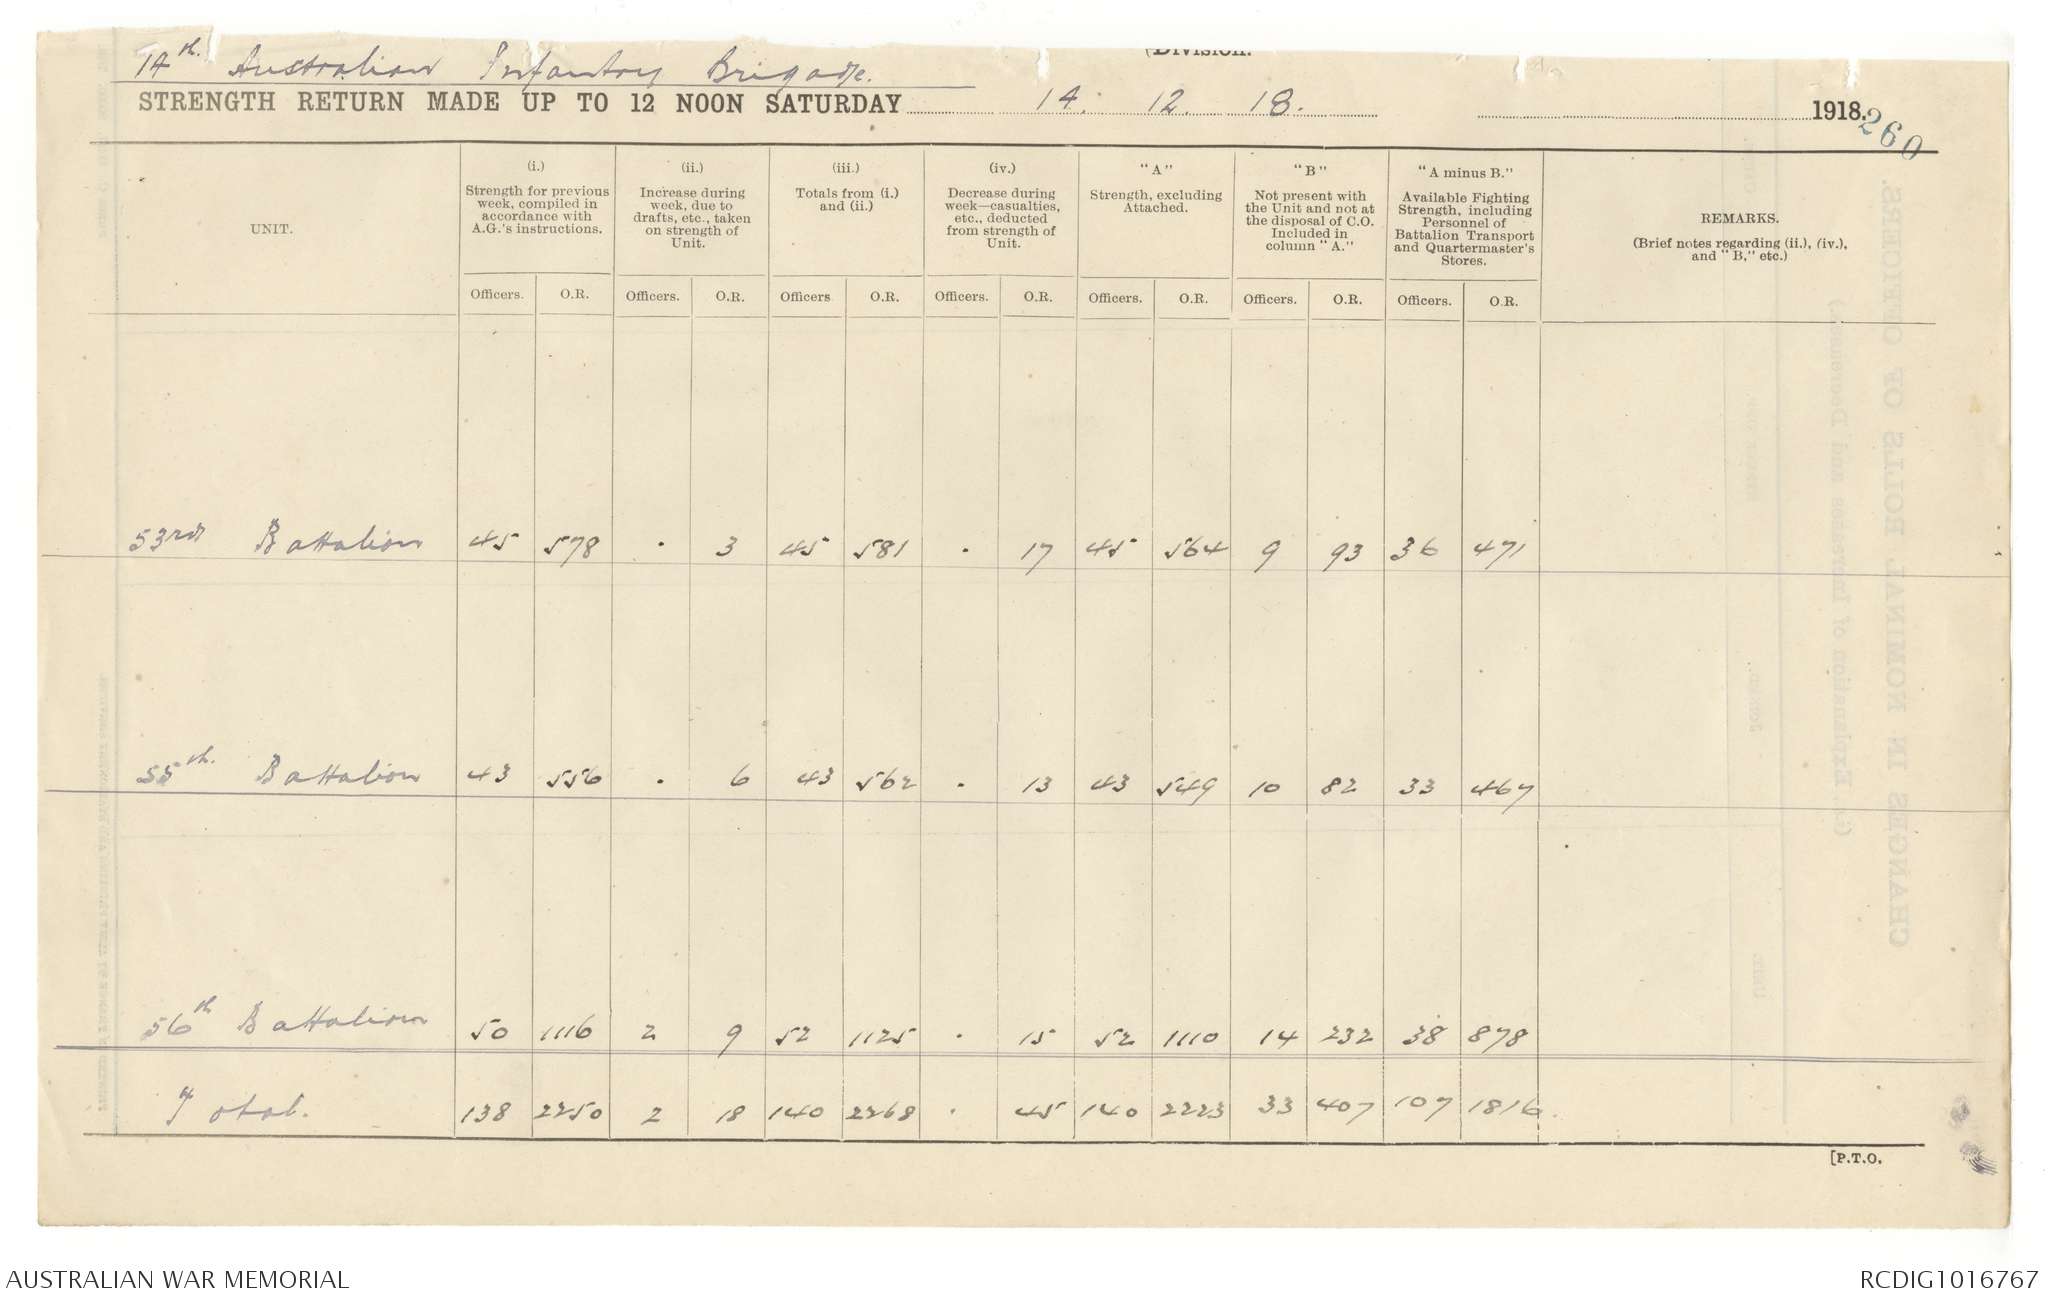 (Division.
14th. Australian Infantry Brigade.
STRENGTH RETURN MADE UP TO 12 NOON SATURDAY 14. 12. 18. 1918.
260
UNIT.
(i.)
Strength for previous
week, compiled in
accordance with
A.G.'s instructions.
(ii.)
Increase during
week, due to
drafts, etc., taken
on strength of
Unit.
(iii.)
Totals from (i.)
and (ii.)
(iv.)
Decrease during
week—casualties,
etc., deducted
from strength of
Unit.
"A"
Strength, excluding
Attached.
"B"
Not present with
the Unit and not at
the disposal of C.O.
Included in
column "A."
"A minus B."
Available Fighting
Strength, including
Personnel of
Battalion Transport
and Quartermaster's
Stores.
REMARKS.
(Brief notes regarding (ii.), (iv.),
and "B," etc.)
Officers. O.R. Officers. O.R. Officers O.R. Officers. O.R. Officers. O.R. Officers. O.R. Officers. O.R.
53rd Battalion 45 578 . 3 45 581 . 17 45 564 9 93 36 471
55th. Battalion 43 556 . 6 43 562 . 13 43 549 10 82 33 467
56th Battalion 50 1116 2 9 52 1125 . 15 52 1110 14 232 38 878
Total. 138 2250 2 18 140 2268 . 45 140 2223 33 407 107 1816.
[P.T.O.
CHANGES IN NOMINAL ROLLS OF OFFICERS.
(i.e. Explanation of Increases and Decreases.)
AUSTRALIAN WAR MEMORIAL
RCDIG1016767